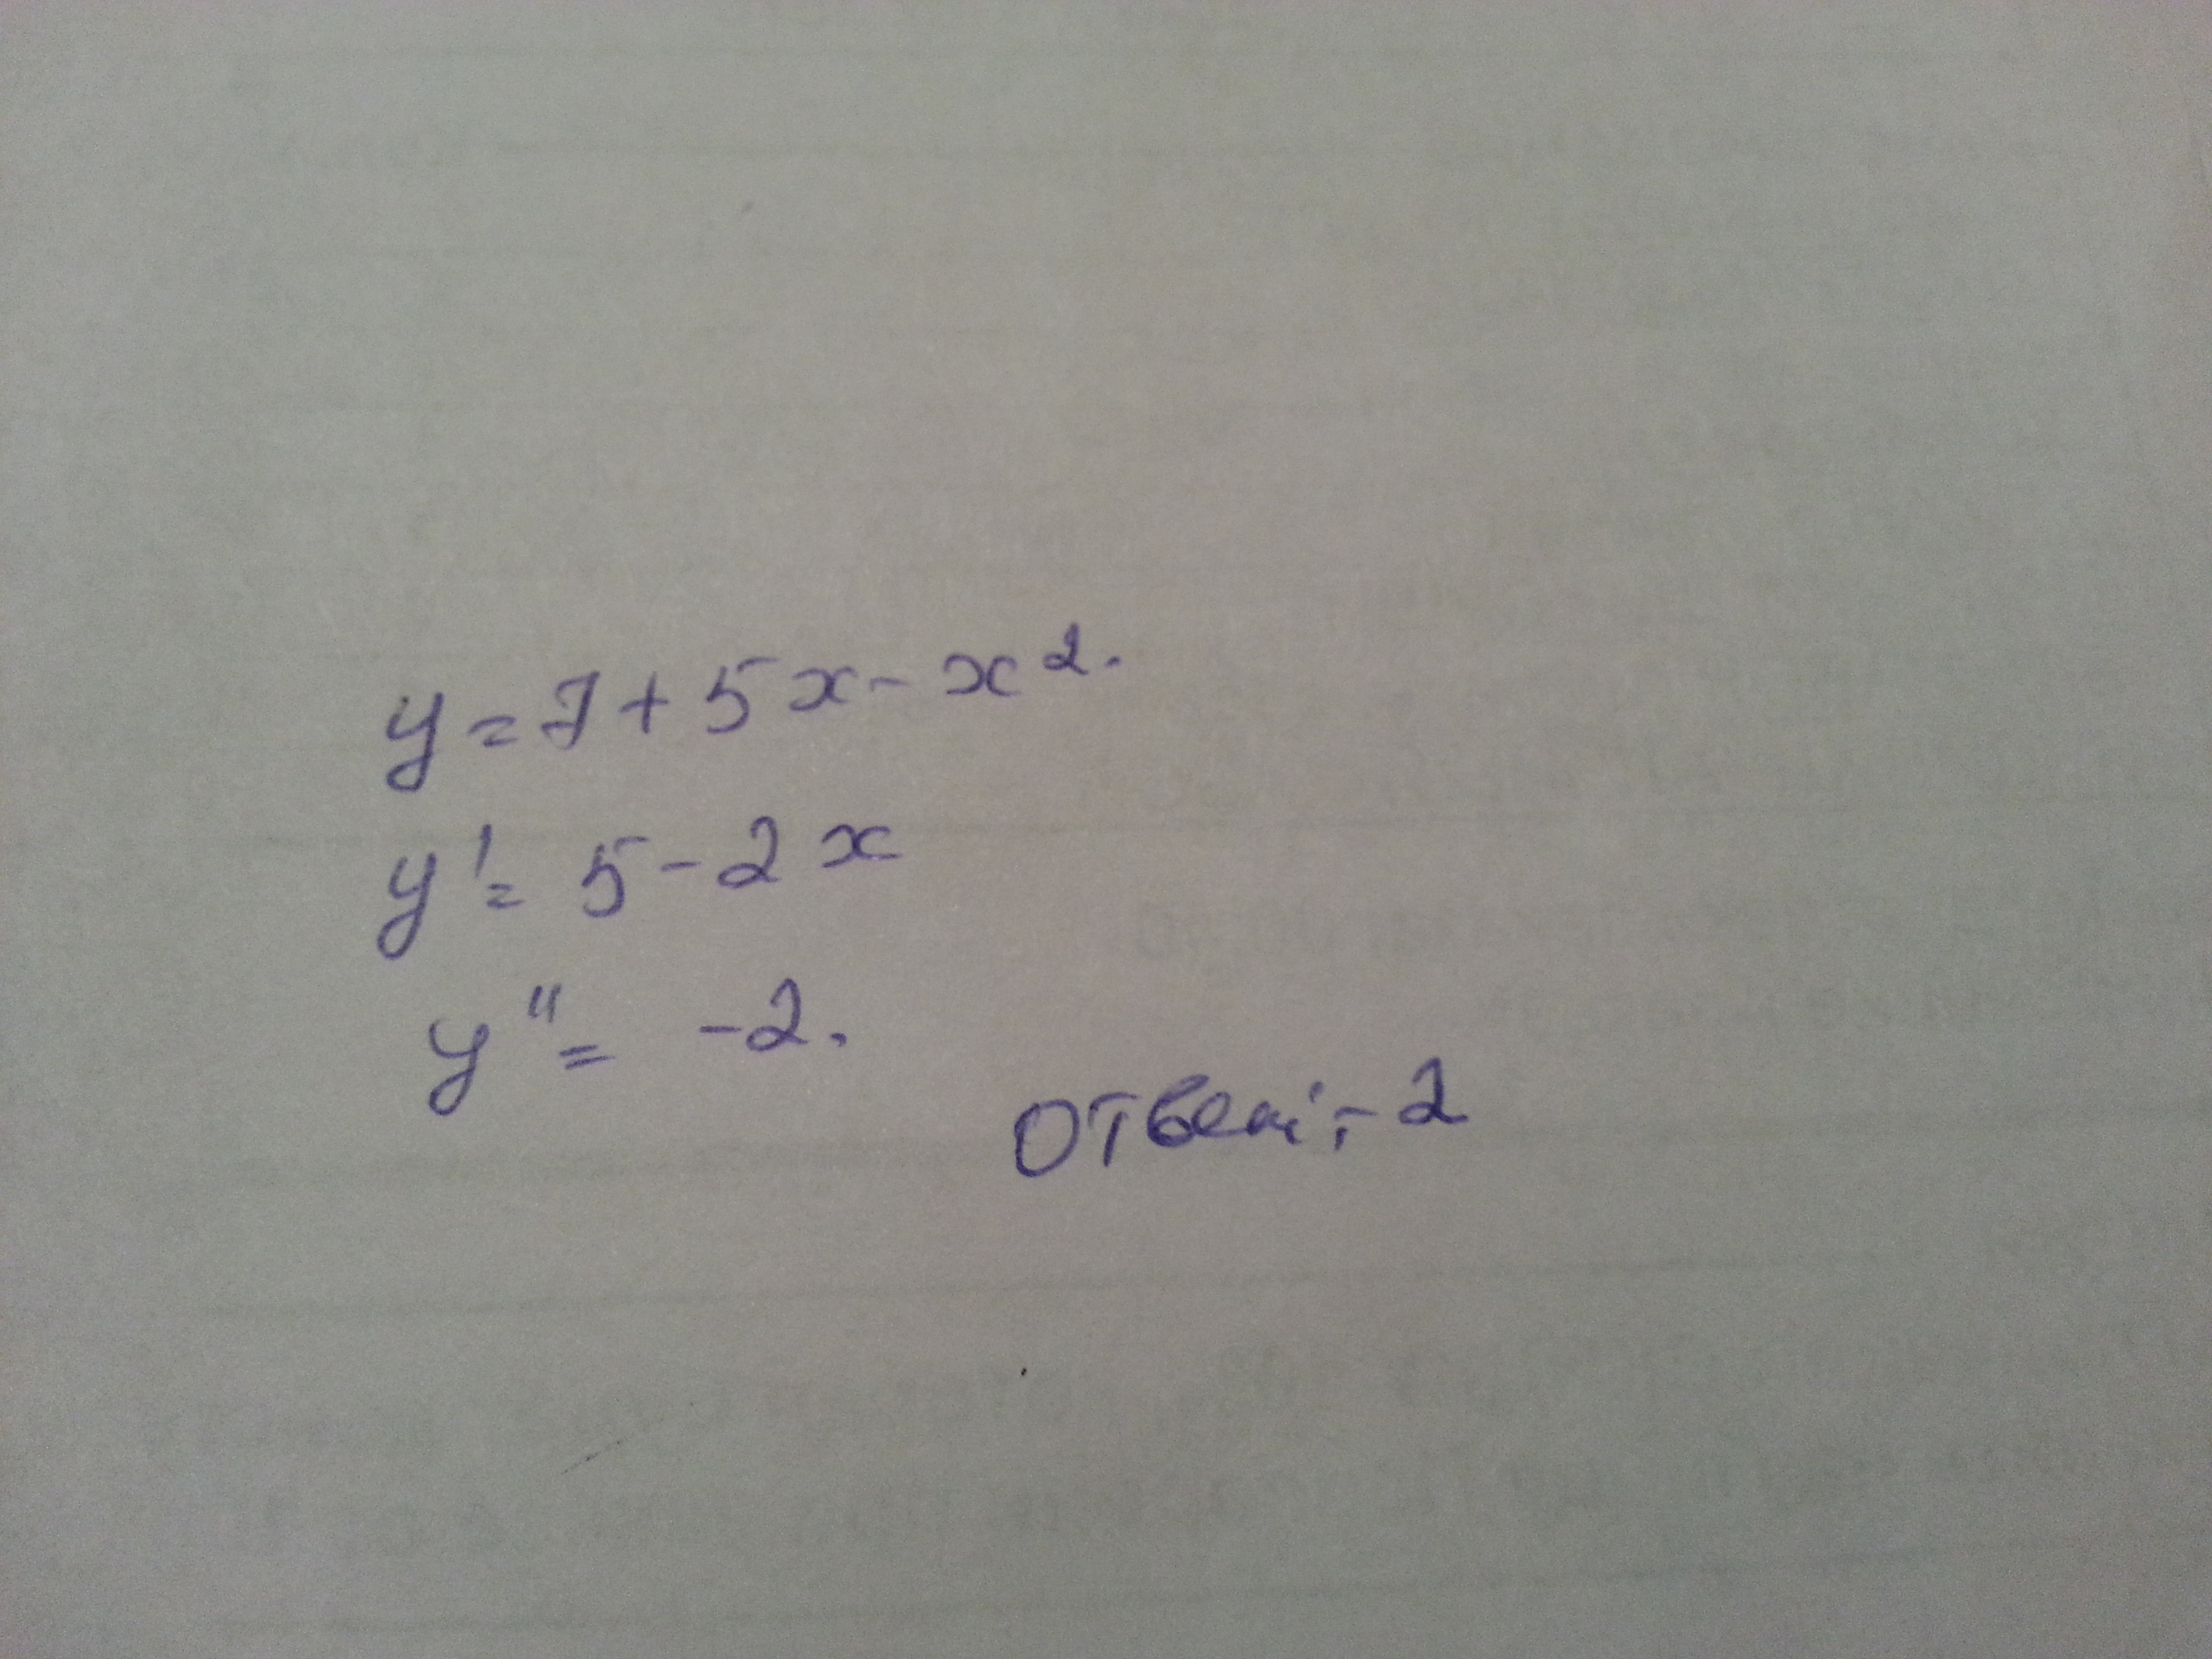 y = 7 + 5x - x².
y' = 5 - 2x
y'' = -2.
Ответ: -2